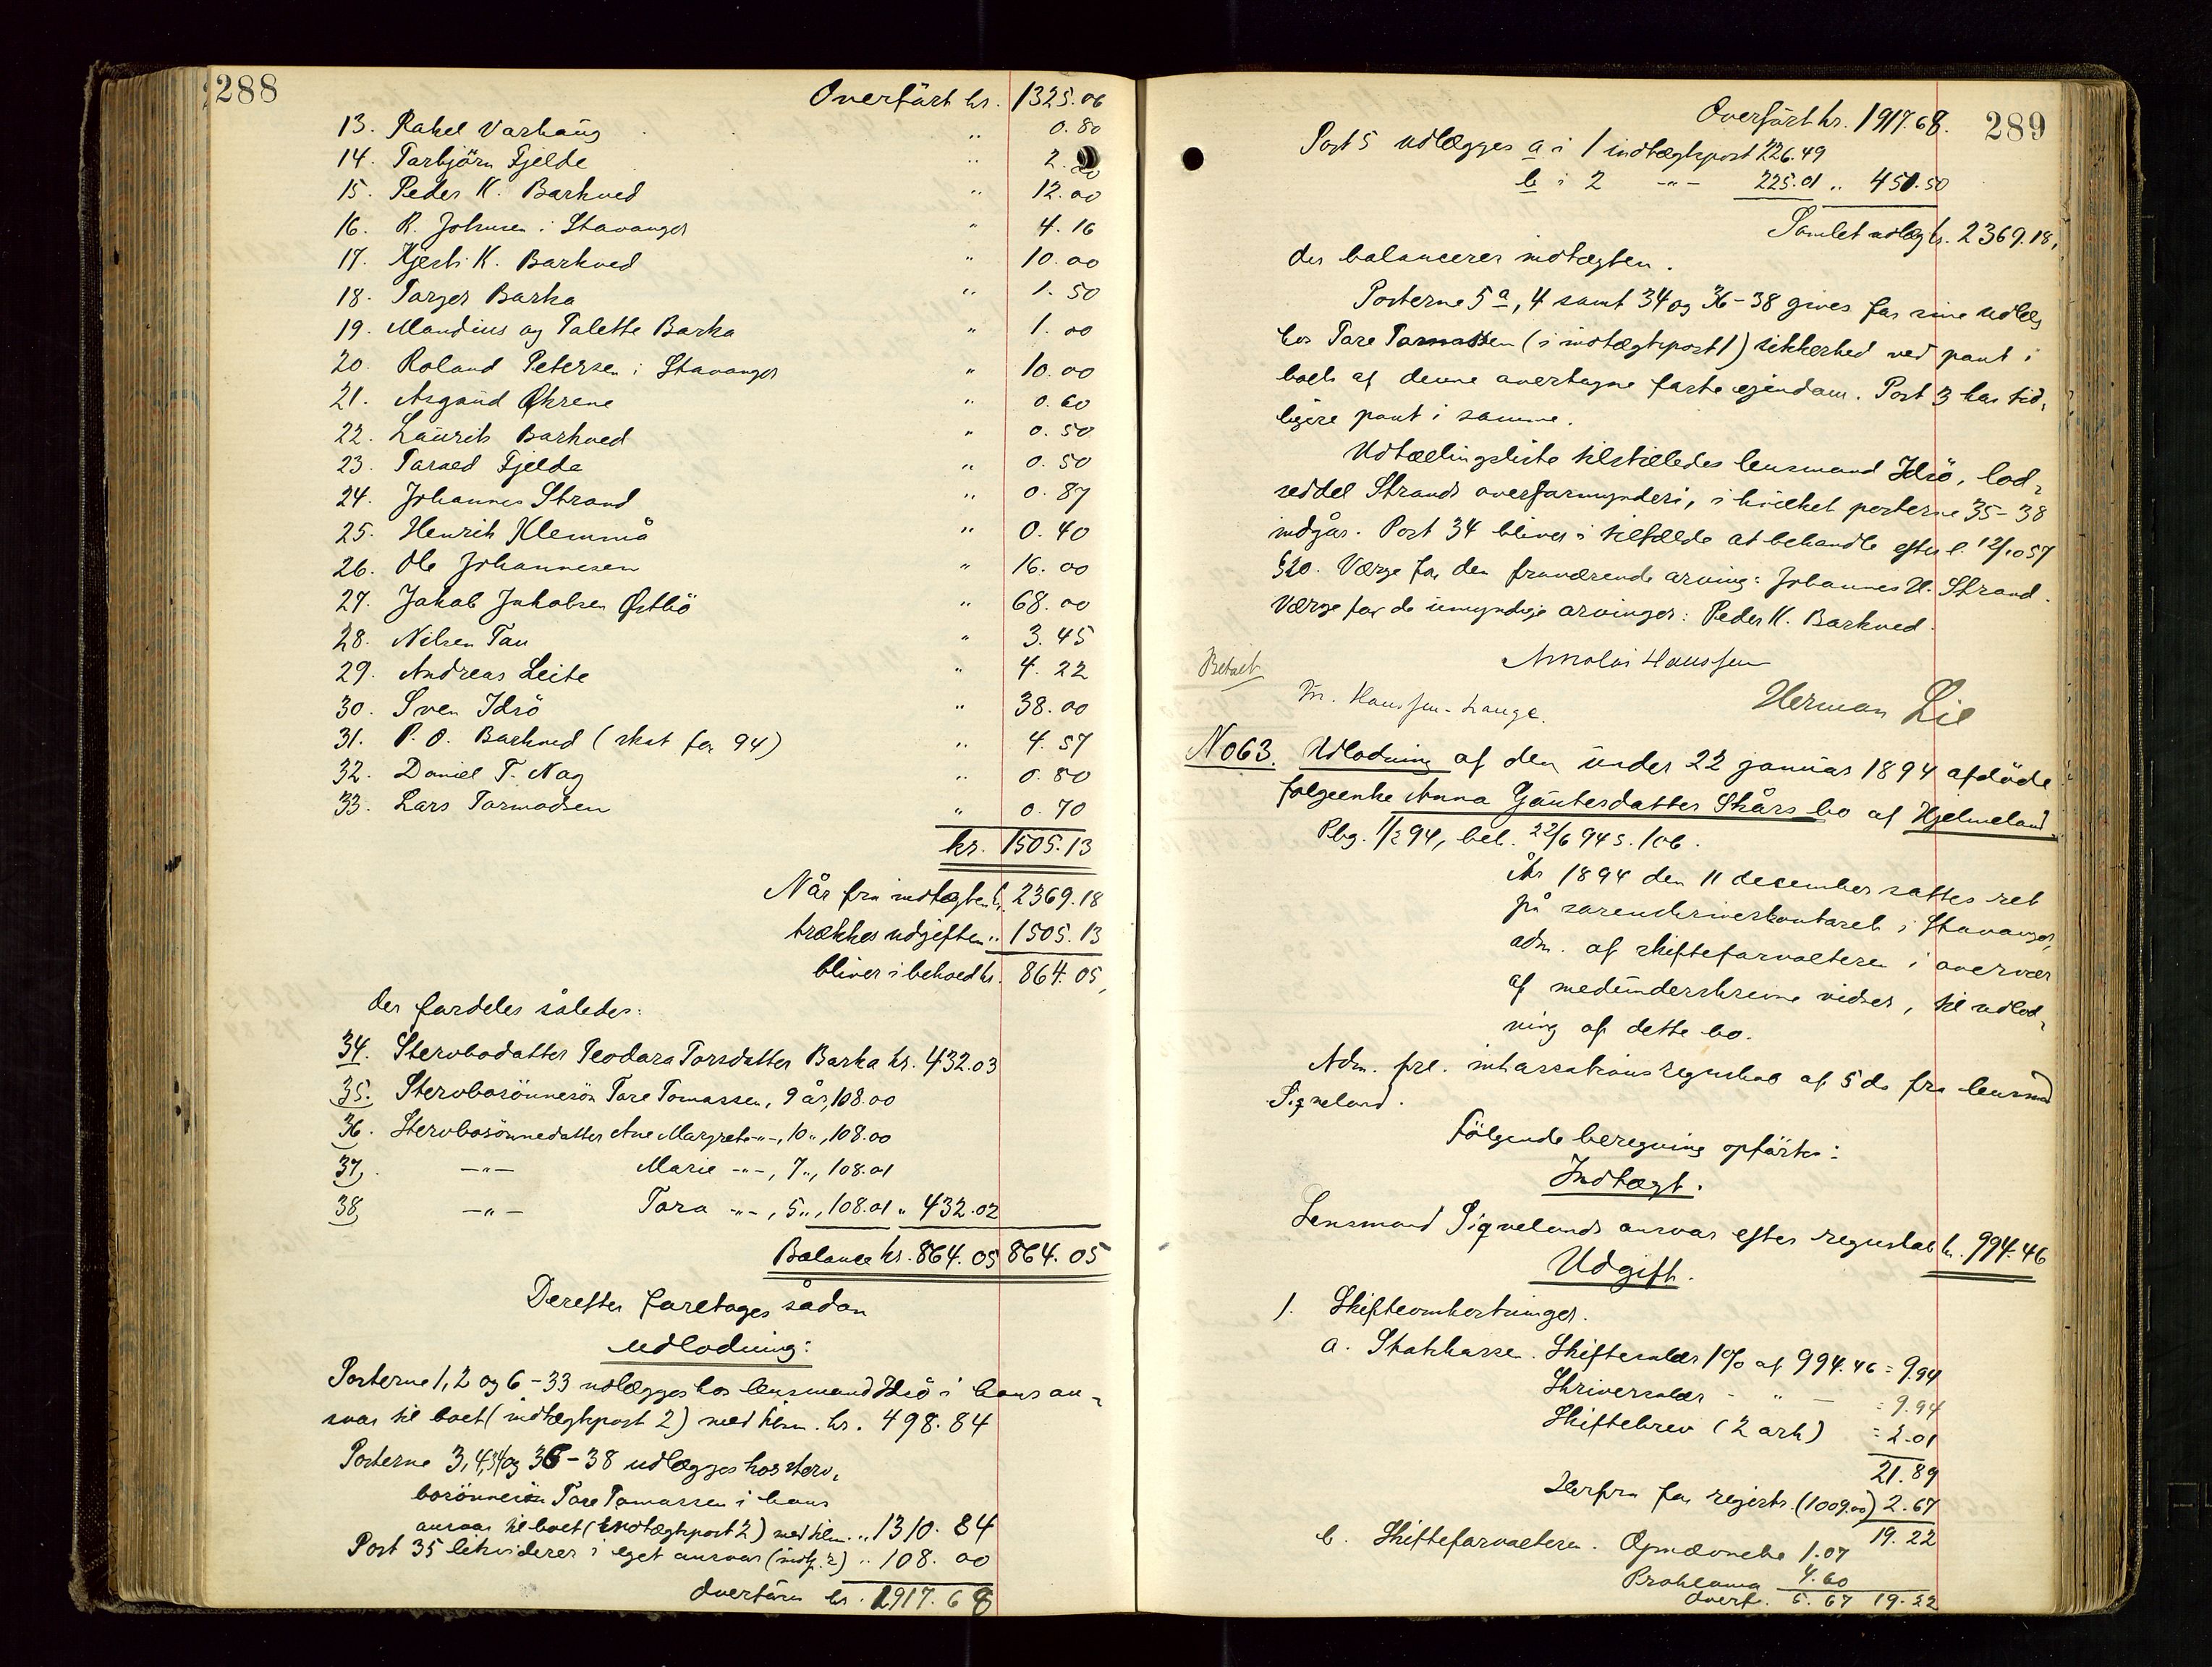 288
Overført kr. 1325.06
13. Rakel Varhaug „ 0.80
14. Tarbjørn Fjelde „ 2.
15. Peder K. Barkved „ 12.00
16. R. Johnsen i Stavanger „ 4.16
17. Kjesti K. Barkved „ 10.00
18. Targer Barka „ 1.50
19. Maudius og Talette Barka „ 1.00
20. Roland Petersen i Stavanger „ 10.00
21. Asgaud Økrene „ 0.60
22. Laurits Barkved „ 0.50
23. Tarald Fjelde „ 0.50
24. Johannes Strand „ 0.87
25. Henrik Klemmå „ 0.40
26. Ole Johannesen „ 16.00
27. Jakob Jakobsen Østbö „ 68.00
28. Nilsen Tau „ 3.45
29. Andreas Leite „ 4.22
30. Sven Idsö „ 38.00
31. P. O. Barkved (skat for 94) „ 4.57
32. Daniel T. Nag „ 0.80
33. Lars Tormodsen „ 0.70
kr. 1505.13
Når fra indtægten kr. 2369.18
trækkes udgiften „ 1505.13
bliver i behold kr. 864.05,
der fordeles således:
34. Stervbodatter Teodora Torsdatter Barka kr. 432.03
35. Stervbosönnesön Tore Tomassen, 9 år, 108.00
36. Stervbosönnedatter Ane Margrete -„-, 10 „, 108.00
37. -„- Marie -„-, 7 „, 108.01
38 -„- Tora -„-, 5 „, 108.01 „ 432.02
Balance kr. 864.05 864.05
Derefter foretages sådan
udlodning:
Posterne 1, 2 og 6-33 udlægges hos lensmand Idsö i hans an-
svar til boet (indtægtspost 2) med tilsm. kr. 498.84
Posterne 3, 4, 34 og 36-38 udlægges hos sterv-
bosönnesön Tore Tomassen i hans
ansvar til boet (indtægtspost 2) med tilsm. „ 1310.84
Post 35 likviderer i eget ansvar (indtp. 2) „ 108.00
Overføres kr. 1917.68
289
Overført kr. 1917.68.
Post 5 udlægges a i 1 indtægtspost 226.49
b i 2 -„- 225.01 „ 451.50
Samlet udlæg kr. 2369.18,
der balancerer indtægten.
Posterne 5 a, 4 samt 34 og 36-38 gives for sine udlæg
hos Tore Tomassen (i indtægtspost 1) sikkerhed ved pant i
boets af denne overtagne faste ejendom. Post 3 har tid-
ligere pant i samme.
Udtællingsliste tilstilledes lensmand Idsö, lod-
seddel Strands overformynderi, i hvilket posterne 35-38
indgår. Post 34 bliver i tilfælde at behandle efter l. 12/10 57
§ 20. Værge for den fraværende arving: Johannes H. Strand.
Værge for de umyndige arvinger: Peder K. Barkved.
Betalt
Nikolai Haussen
M. Haussen-Lange.
Herman Lie
No 63. Udlodning af den under 22 januar 1894 afdöde
folgeenke Anna Gautesdatter Skårs bo af Hjelmeland.
Rbg. 1/2 94, bel. 22/6 94 s. 106.
År 1894 den 11 december sattes ret
på sorenskriverkontoret i Stavanger,
adm. af skifteforvalteren i overvær
af medunderskrevne vidner, til udlod-
ning af dette bo.
Adm. frl. inkassationsregnskab af 5 ds fra lensmand
Sigveland.
Følgende beregning opførtes:
Indtægt.
Lensmand Sigvelands ansvar efter regnskab kr. 994.46
Udgift.
1. Skifteomkostninger.
a. Statskassen. Skiftesalær 1% af 994.46 = 9.94
Skriversalær - „ - = 9.94
Skiftebrev (2 ark) = 2.01
21.89
Herfra for registr. (1009.00) 2.67
19.22
b. Skifteforvalteren. Opnævnelse 1.07
Proklama 4.60
Overf. 5.67 19.22